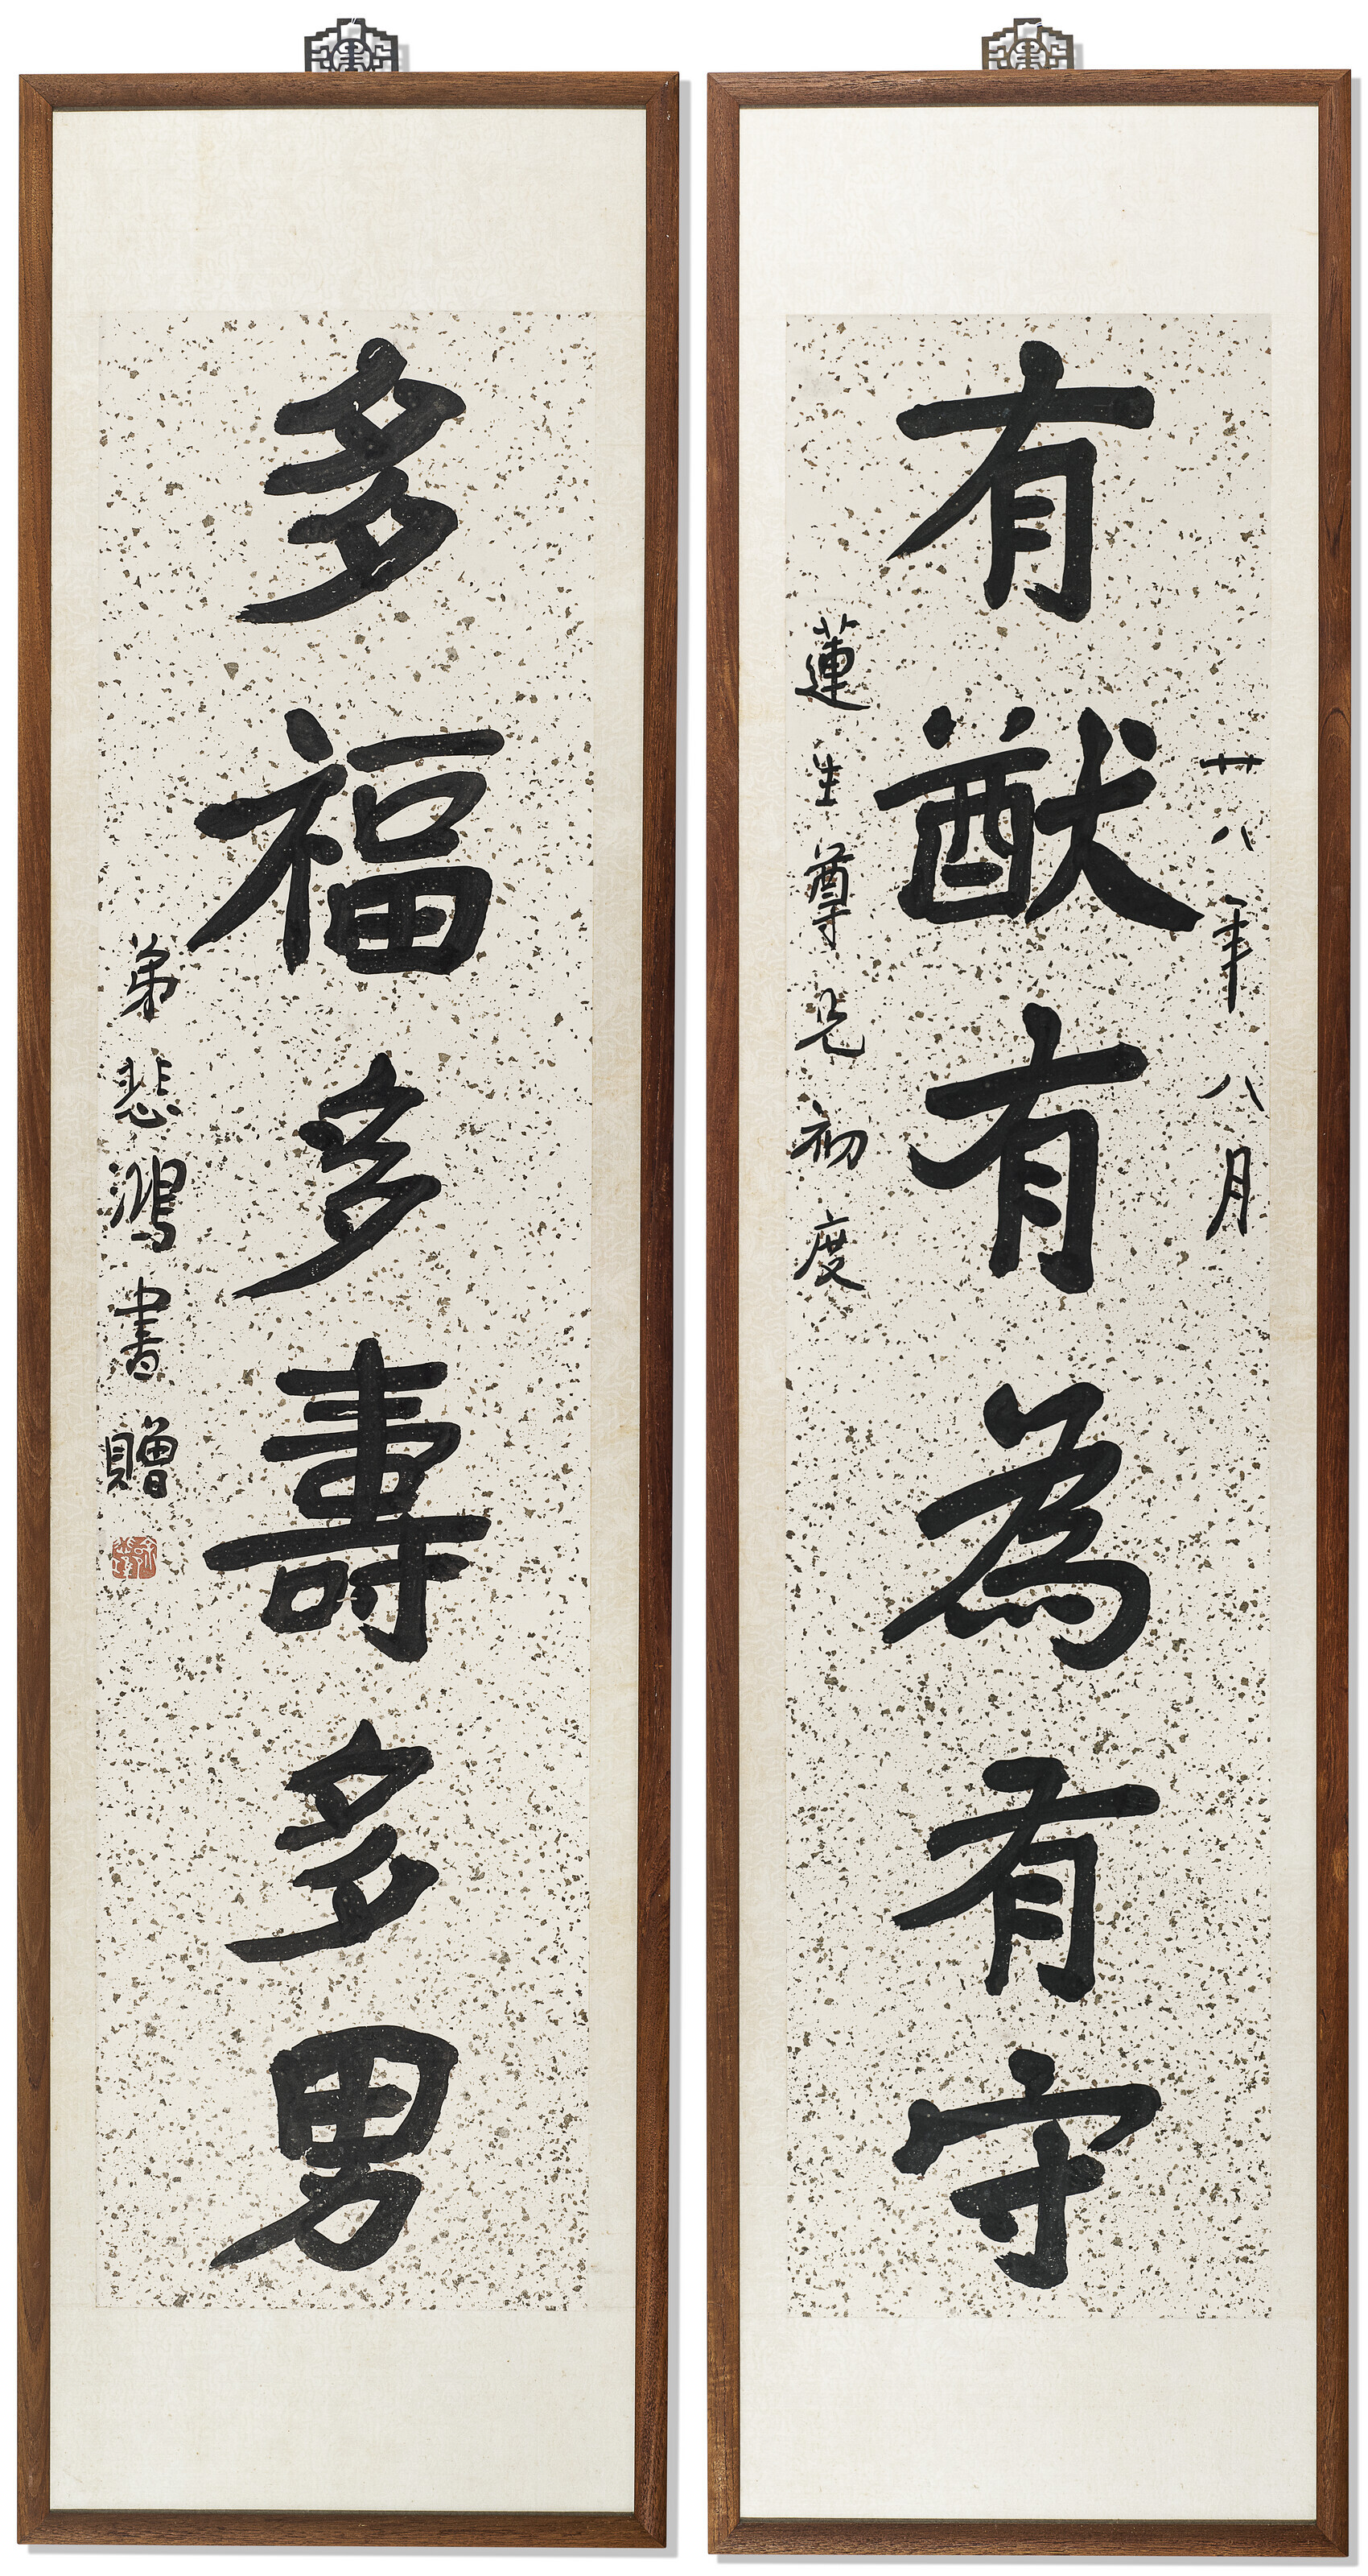 廿八年八月
有猷有為有守
蓮生尊兄初度
多福多壽多男
弟悲鴻書贈